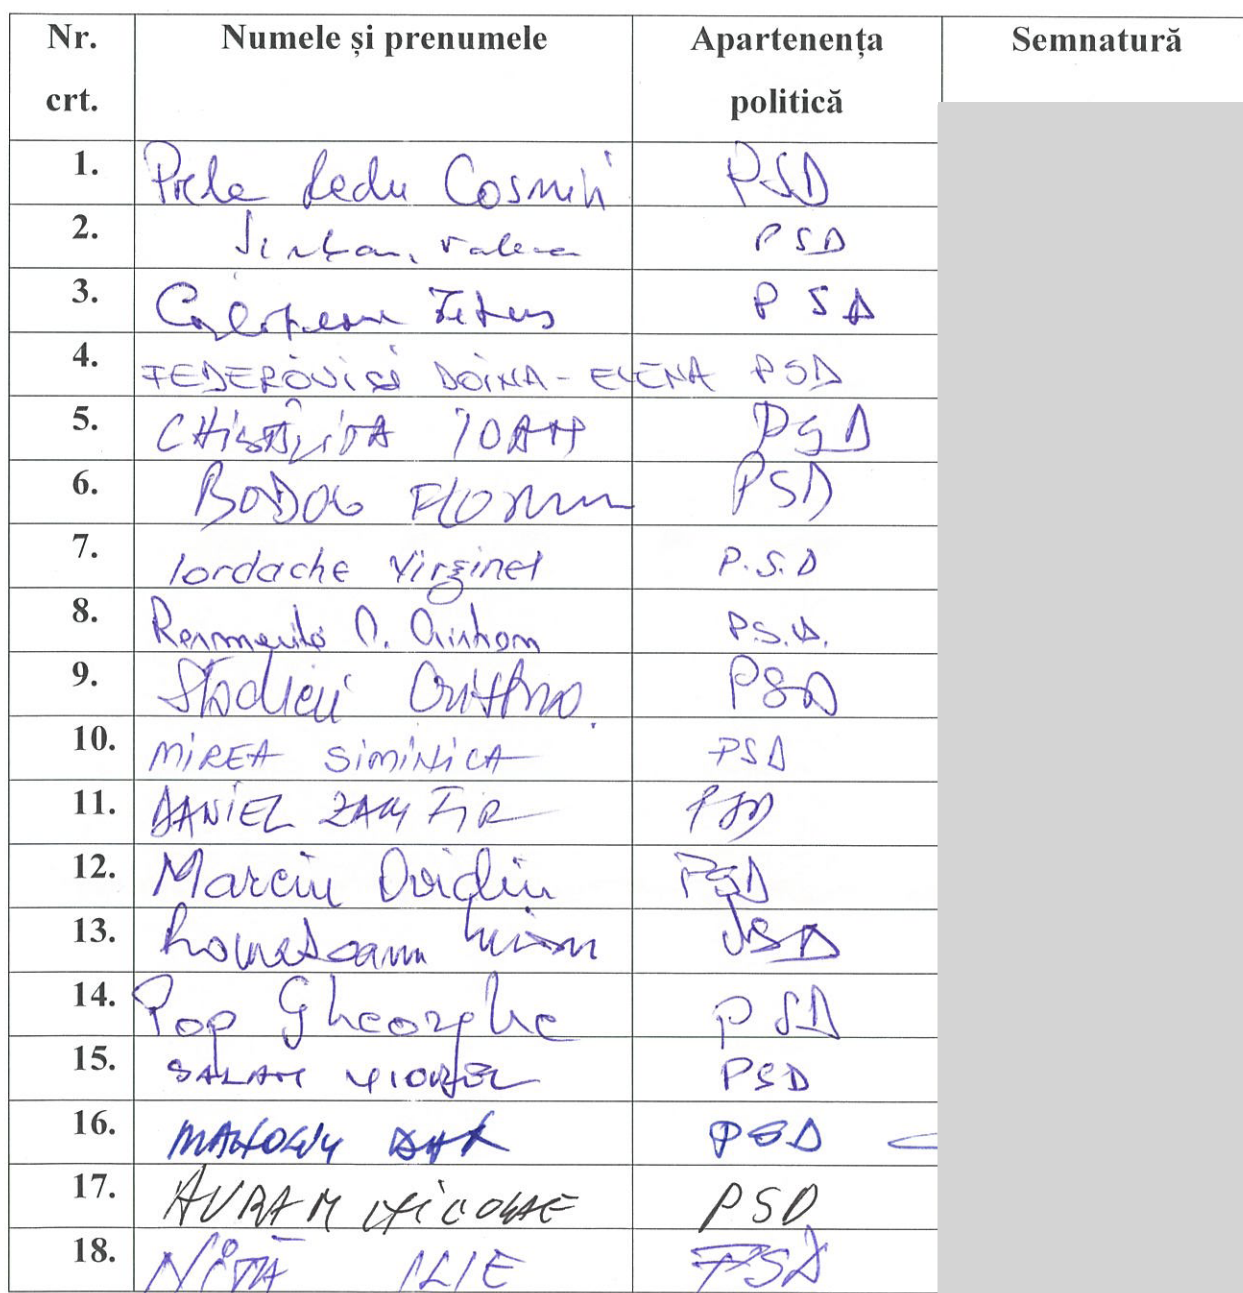 Nr. crt. Numele și prenumele Apartenența politică Semnatură
1. Cosmin PSD
2. PSD
3. Titus PSD
4. FEDEROVICI DOINA-ELENA PSD
5. CHISĂLIȚA IOAN PSD
6. BODOG Florian PSD
7. Iordache Virginel P.S.D
8. P.S.D.
9. Stocheci Cristina PSD
10. MIREA SIMINICA PSD
11. DANIEL ZAMFIR PSD
12. Marciu Ovidiu PSD
13. Romașcanu Lucian PSD
14. Pop Gheorghe PSD
15. SALAN VIOREL PSD
16. MANOLIU DAN PSD
17. AVRAM NICOLAE PSD
18. NIȚĂ ILIE PSD